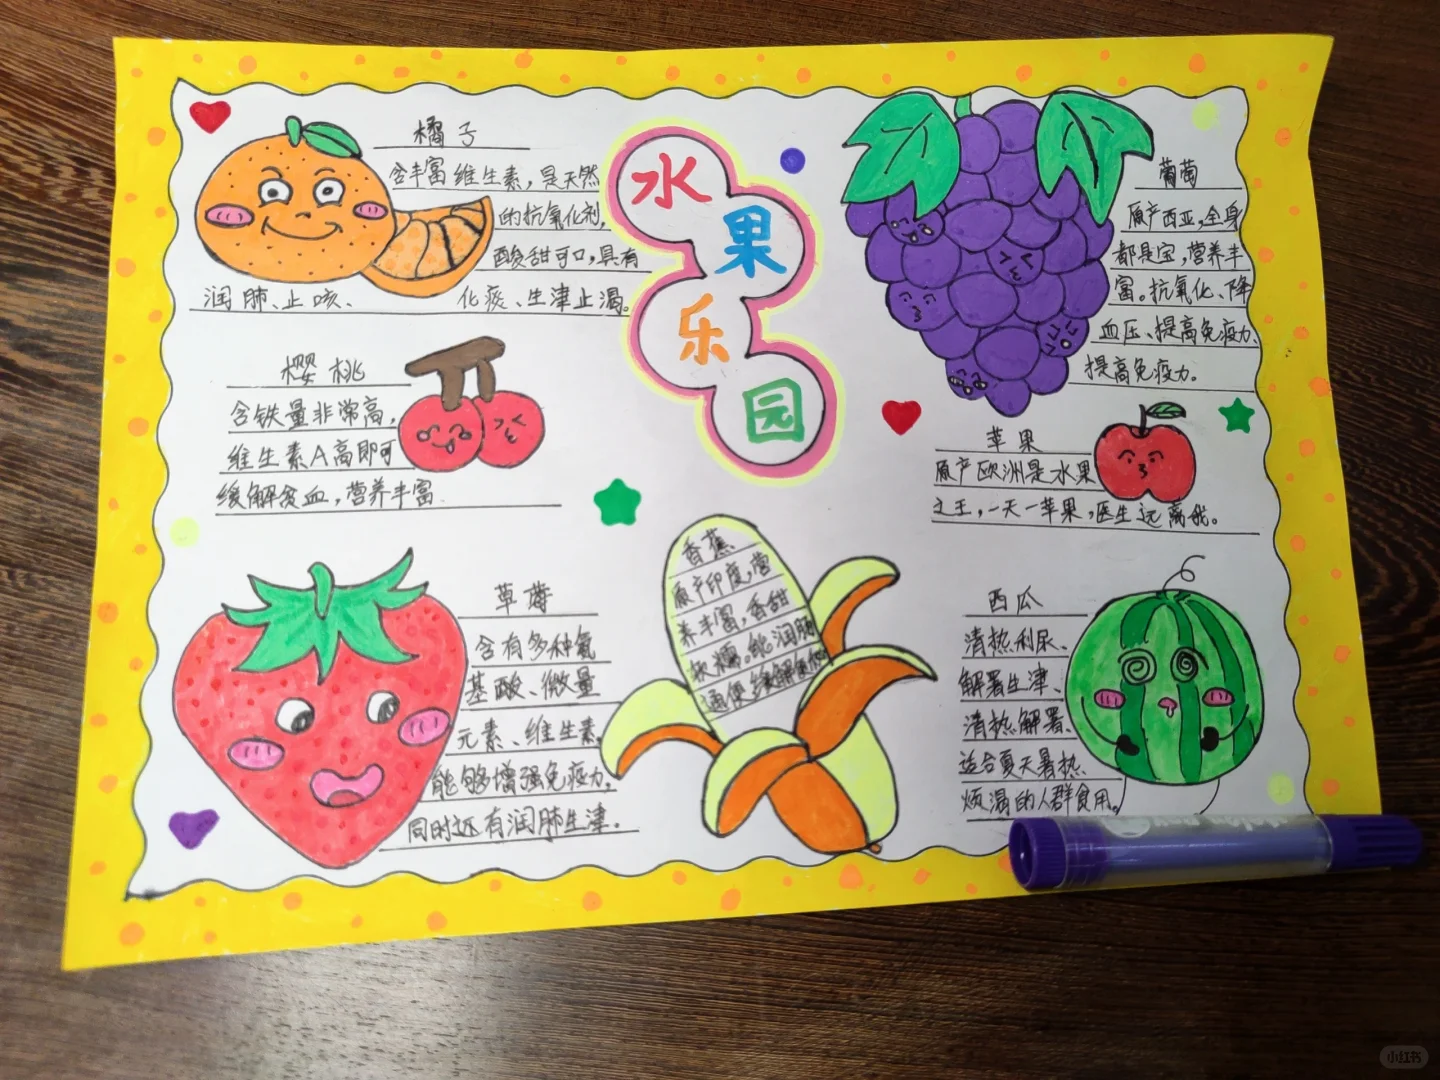 水果乐园
橘子
含丰富维生素，是天然
的抗氧化剂，
酸甜可口，具有
润肺、止咳、化痰、生津止渴。
樱桃
含铁量非常高，
维生素A高即可
缓解贫血，营养丰富
草莓
含有多种氨
基酸、微量
元素、维生素，
能够增强免疫力，
同时还有润肺生津．
香蕉
原产印度，营
养丰富，香甜
软糯。能润肠
通便缓解
葡萄
原产西亚，全身
都是宝，营养丰
富。抗氧化、降
血压、提高免疫力、
提高免疫力。
苹果
原产欧洲是水果
之王，一天一苹果，医生远离我。
西瓜
清热利尿、
解署生津、
清热解署、
适合夏天暑热
烦渴的人群食用。
小红书